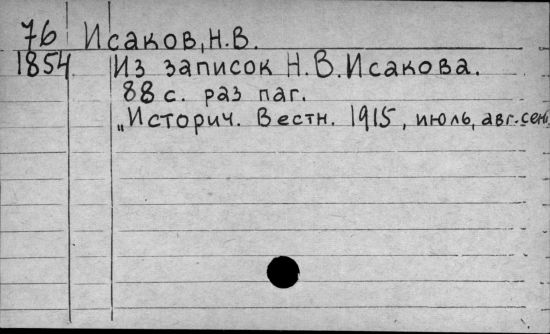 76 Исаков, Н.В.
1854 Из записок Н.В. Исакова.
88 с. раз паг.
„Историч. Вестн. 1915, июль, авг.-сен.